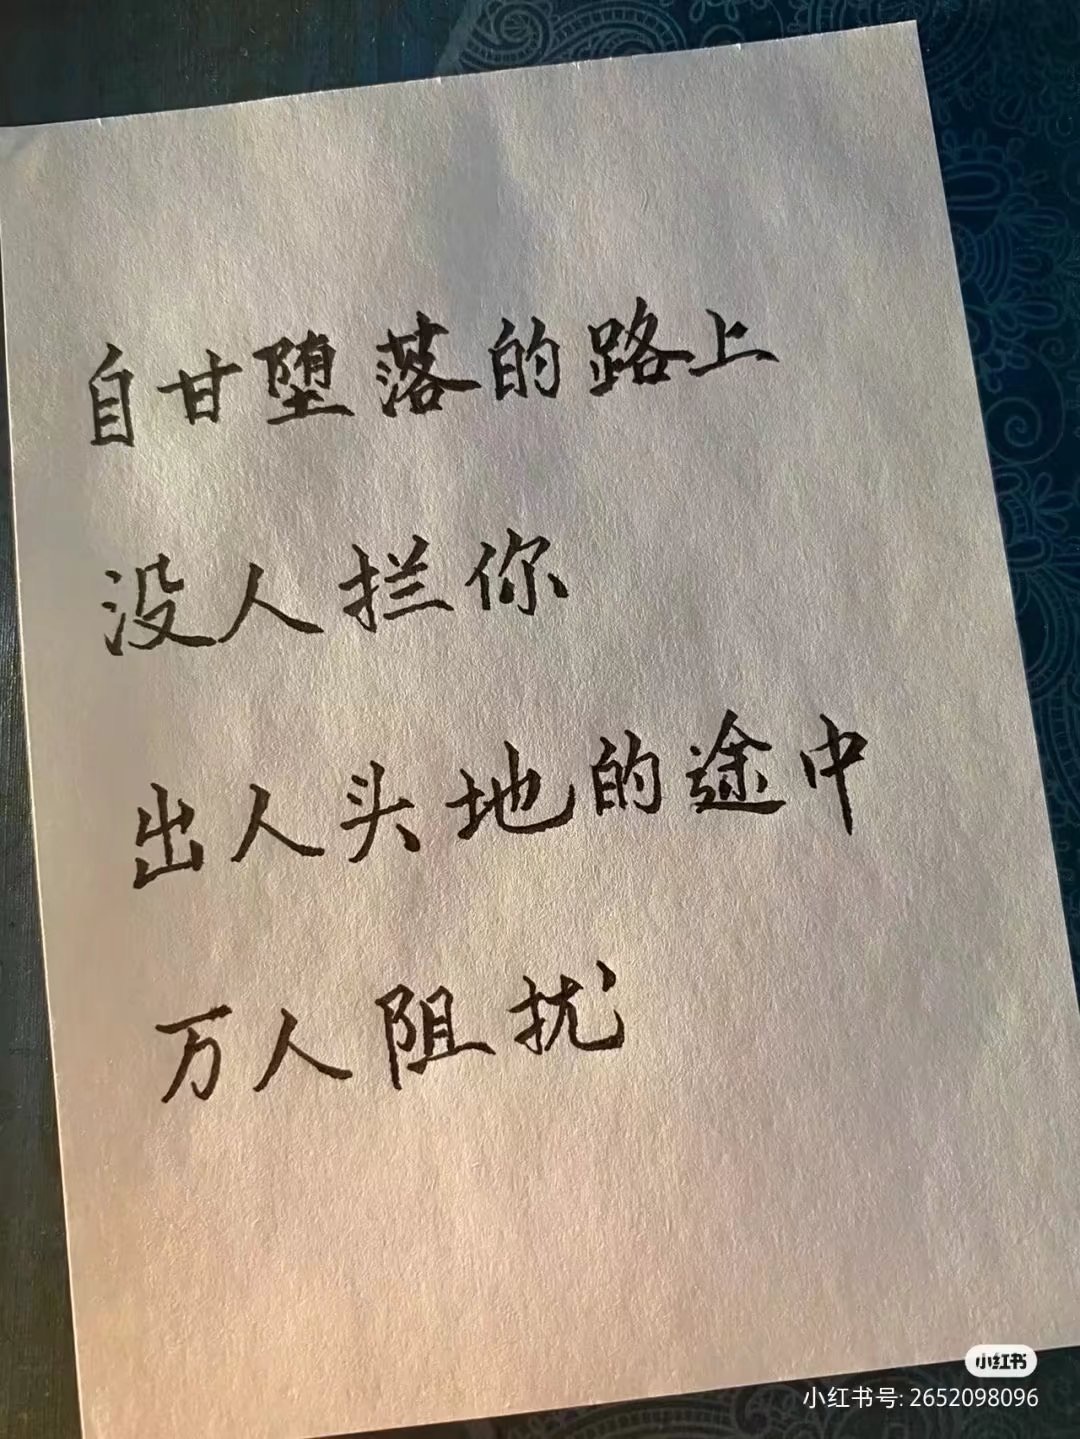 自甘堕落的路上
没人拦你
出人头地的途中
万人阻扰
小红书
小红书号: 2652098096